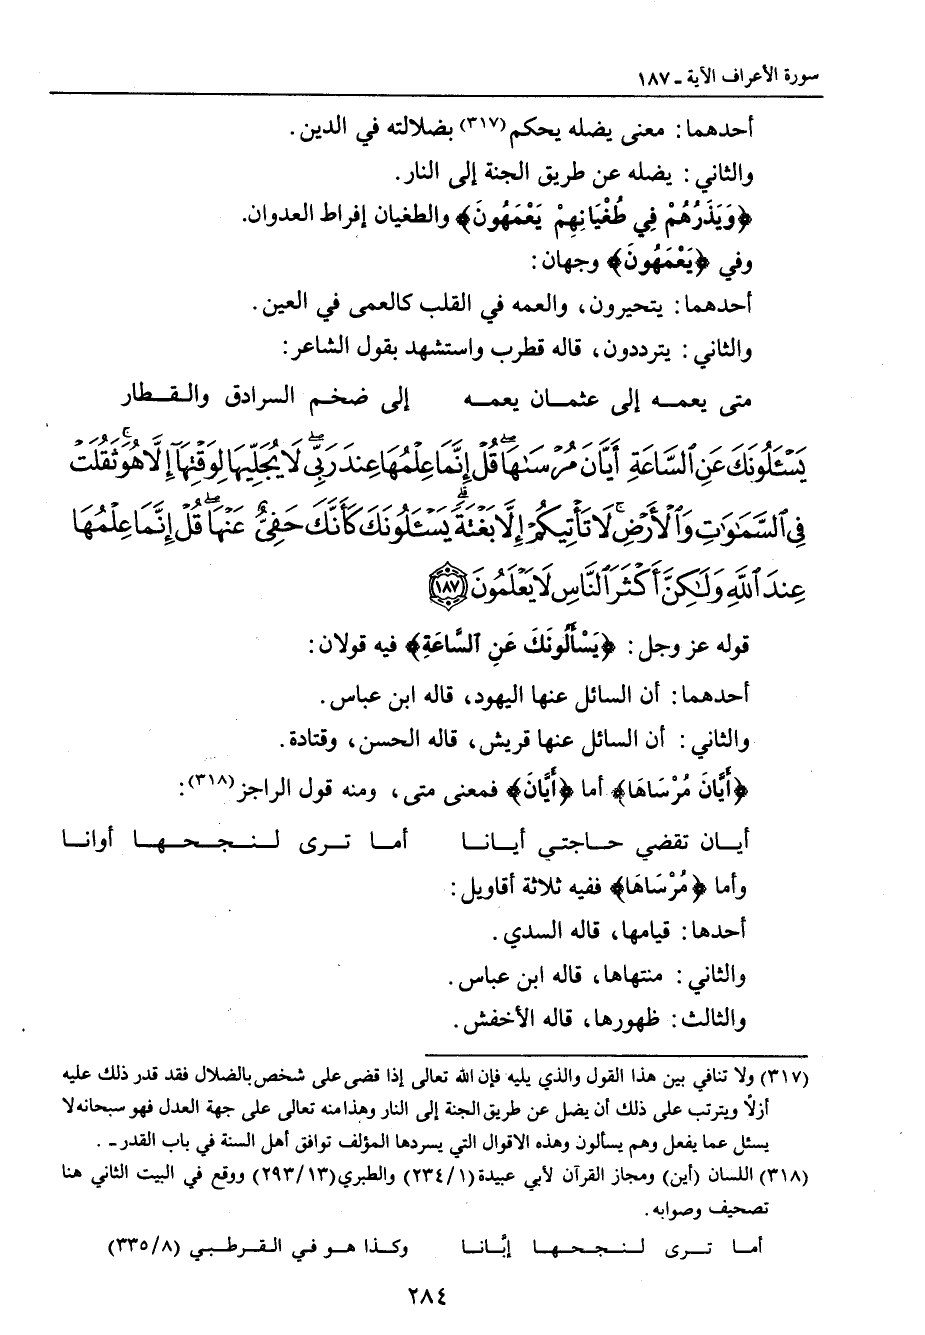 سورة الأعراف الآية ـ ١٨٧
أحدهما: معنى يضله يحكم(٣١٧) بضلالته في الدين.
والثاني: يضله عن طريق الجنة إلى النار.
﴿وَيَذَرُهُمْ فِي طُغْيَانِهِمْ يَعْمَهُونَ﴾ والطغيان إفراط العدوان.
وفي ﴿يَعْمَهُونَ﴾ وجهان:
أحدهما: يتحيرون، والعمه في القلب كالعمى في العين.
والثاني: يترددون، قاله قطرب واستشهد بقول الشاعر:
متى يعمه إلى عثمان يعمه إلى ضخم السرادق والقطار
يَسْـَٔلُونَكَ عَنِ ٱلسَّاعَةِ أَيَّانَ مُرْسَىٰهَا ۖ قُلْ إِنَّمَا عِلْمُهَا عِندَ رَبِّى ۖ لَا يُجَلِّيهَا لِوَقْتِهَآ إِلَّا هُوَ ۚ ثَقُلَتْ
فِى ٱلسَّمَٰوَٰتِ وَٱلْأَرْضِ ۚ لَا تَأْتِيكُمْ إِلَّا بَغْتَةً ۗ يَسْـَٔلُونَكَ كَأَنَّكَ حَفِىٌّ عَنْهَا ۖ قُلْ إِنَّمَا عِلْمُهَا
عِندَ ٱللَّهِ وَلَٰكِنَّ أَكْثَرَ ٱلنَّاسِ لَا يَعْلَمُونَ ١٨٧
قوله عز وجل: ﴿يَسْأَلُونَكَ عَنِ السَّاعَةِ﴾ فيه قولان:
أحدهما: أن السائل عنها اليهود، قاله ابن عباس.
والثاني: أن السائل عنها قريش، قاله الحسن، وقتادة.
﴿أَيَّانَ مُرْسَاهَا﴾ أما ﴿أَيَّانَ﴾ فمعنى متى، ومنه قول الراجز(٣١٨):
أيان تقضي حاجتي أيانا أما ترى لنجحها أوانا
وأما ﴿مُرْسَاهَا﴾ ففيه ثلاثة أقاويل:
أحدها: قيامها، قاله السدي.
والثاني: منتهاها، قاله ابن عباس.
والثالث: ظهورها، قاله الأخفش.
(٣١٧) ولا تنافي بين هذا القول والذي يليه فإن الله تعالى إذا قضى على شخص بالضلال فقد قدر ذلك عليه
أزلًا ويترتب على ذلك أن يضل عن طريق الجنة إلى النار وهذا منه تعالى على جهة العدل فهو سبحانه لا
يسئل عما يفعل وهم يسألون وهذه الاقوال التي يسردها المؤلف توافق أهل السنة في باب القدر ـ .
(٣١٨) اللسان (أين) ومجاز القرآن لأبي عبيدة (١/٢٣٤) والطبري (١٣/٢٩٣) ووقع في البيت الثاني هنا
تصحيف وصوابه.
أما ترى لنجحها إبَّانا وكذا هو في القرطبي (٨/٣٣٥)
٢٨٤